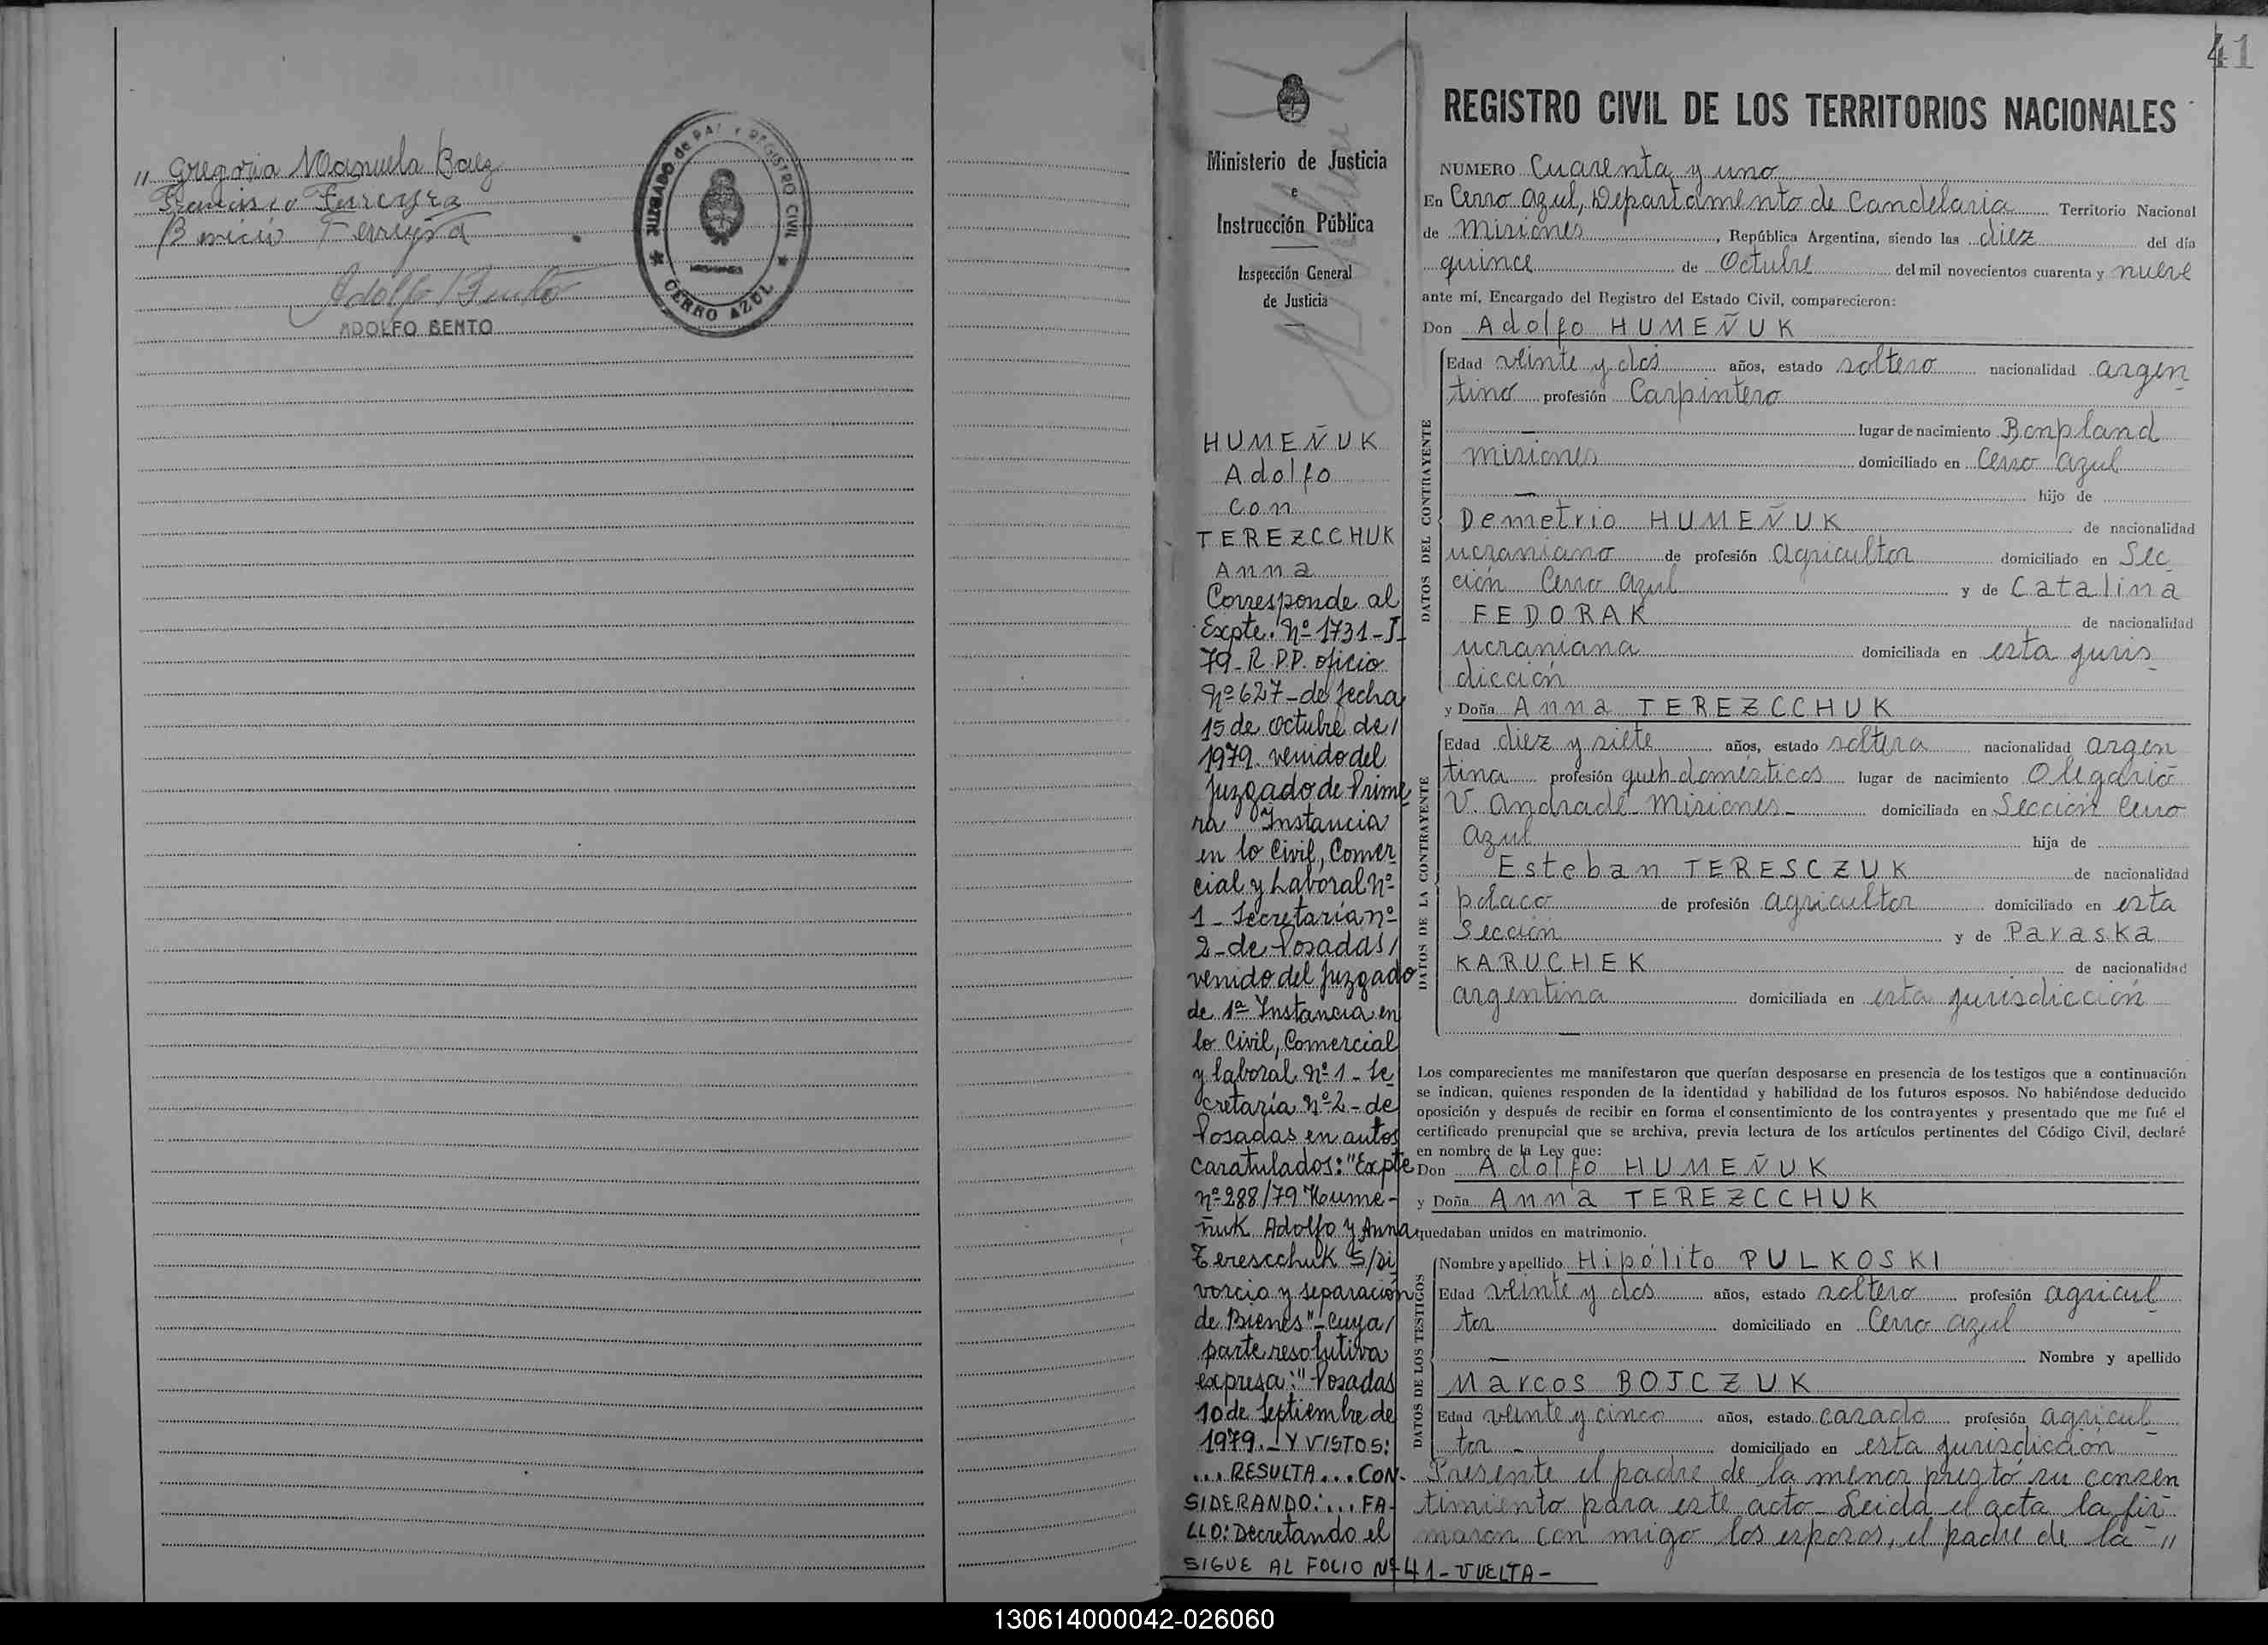 " Gregoria Manuela Baez
Francisco Ferreyra
Benicio Ferreyra
Adolfo Bento
ADOLFO BENTO
JUZGADO de PAZ Y REGISTRO CIVIL
MISIONES
★ CERRO AZUL ★
41
Ministerio de Justicia
e
Instrucción Pública
Inspección General
de Justicia
HUMEÑUK
Adolfo
con
TEREZCCHUK
Anna
Corresponde al
Expte. Nº 1731-J-
79-R.P.P. oficio
Nº 627-de fecha
15 de octubre de/
1979. venido del
Juzgado de Prime
ra Instancia
en lo Civil, Comer
cial y Laboral nº
1- Secretaría nº
2-de Posadas/
venido del Juzgado
de 1ª Instancia en
lo Civil, Comercial
y laboral nº 1- Se
cretaría Nº 2-de
Posadas en autos
caratulados: "Expte
nº 288/79 Heume-
ñuk Adolfo y Anna
Terescchuk S/Di
vorcio y separación
de Bienes"-cuya/
parte resolutiva
expresa: "Posadas
10 de Septiembre de
1979.-Y VISTOS:
...RESULTA...CON-
SIDERANDO:...FA-
LLO: Decretando el
SIGUE AL FOLIO Nº 41-VUELTA-
REGISTRO CIVIL DE LOS TERRITORIOS NACIONALES
NUMERO Cuarenta y uno
En Cerro Azul, Departamento de Candelaria Territorio Nacional
de Misiones, República Argentina, siendo las diez del día
quince de Octubre del mil novecientos cuarenta y nueve
ante mí, Encargado del Registro del Estado Civil, comparecieron:
Don Adolfo HUMEÑUK
DATOS DEL CONTRAYENTE
Edad veinte y dos años, estado soltero nacionalidad argen
tino profesión Carpintero
lugar de nacimiento Bonpland
Misiones domiciliado en Cerro Azul
hijo de
Demetrio HUMEÑUK de nacionalidad
ucraniano de profesión agricultor domiciliado en Sec
ción Cerro Azul y de Catalina
FEDORAK de nacionalidad
ucraniana domiciliada en esta juris
dicción
y Doña Anna TEREZCCHUK
DATOS DE LA CONTRAYENTE
Edad diez y siete años, estado soltera nacionalidad argen
tina profesión queh. domésticos lugar de nacimiento Olegario
V. Andrade Misiones- domiciliada en Sección Cerro
Azul hija de
Esteban TERESCZUK de nacionalidad
polaco de profesión agricultor domiciliado en esta
Sección y de Paraska
KARUCHEK de nacionalidad
argentina domiciliada en esta jurisdicción
Los comparecientes me manifestaron que querían desposarse en presencia de los testigos que a continuación
se indican, quienes responden de la identidad y habilidad de los futuros esposos. No habiéndose deducido
oposición y después de recibir en forma el consentimiento de los contrayentes y presentado que me fué el
certificado prenupcial que se archiva, previa lectura de los artículos pertinentes del Código Civil, declaré
en nombre de la Ley que:
Don Adolfo HUMEÑUK
y Doña Anna TEREZCCHUK
quedaban unidos en matrimonio.
DATOS DE LOS TESTIGOS
Nombre y apellido Hipólito PULKOSKI
Edad veinte y dos años, estado soltero profesión agricul
tor domiciliado en Cerro Azul
Nombre y apellido
Marcos BOJCZUK
Edad veinte y cinco años, estado casado profesión agricul
tor - domiciliado en esta jurisdicción
Presente el padre de la menor prestó su consen
timiento para este acto- Leida el acta la fir-
maron con migo los esposos, el padre de la - "
130614000042-026060